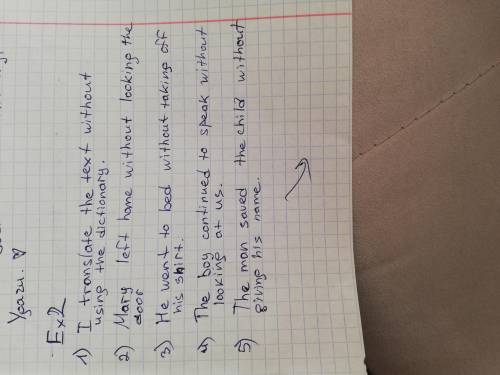 Удачи. ♡
Ex2
1) I translate the text without
using the dictionary.
2) Mary left home without looking the
door
3) He went to bed without taking off
his shirt.
4) The boy continued to speak without
looking at us.
5) The man saved the child without
giving his name.